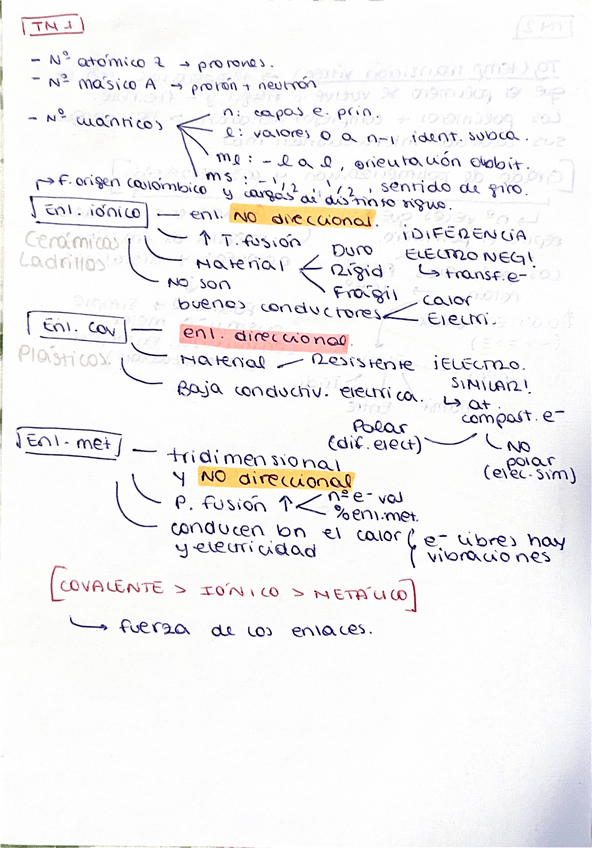 TM 1
- Nº atómico Z → protones.
- Nº másico A → protón + neutrón
- Nº cuánticos
n: capas e prin.
l: valores 0 a n-1 ident. subca.
ml: -l a l, orientación orbit.
ms: -1/2, 1/2, sentido de giro.
→ F. origen coulómbico y cargas de distinto signo.
Enl. iónico — enl. NO direccional.
Cerámicos
Ladrillos
↑ T. fusión
Material
Duro
Rígid
Frágil
¡DIFERENCIA
ELECTRONEG!
↳ transf. e-
NO son
buenos conductores
Calor
Electri.
Enl. cov — enl. direccional.
Plásticos.
Material — Resistente
Baja conductiv. electrica.
¡ELECTRO.
SIMILAR!
↳ at.
compart. e-
Polar
(dif. elect)
NO
polar
(elec. sim)
Enl. met — tridimensional
y NO direccional
P. fusión ↑
nº e- val
% enl. met.
conducen bn el calor
y electricidad
e- libres hay
vibraciones
[COVALENTE > IÓNICO > METÁLICO]
↳ fuerza de los enlaces.